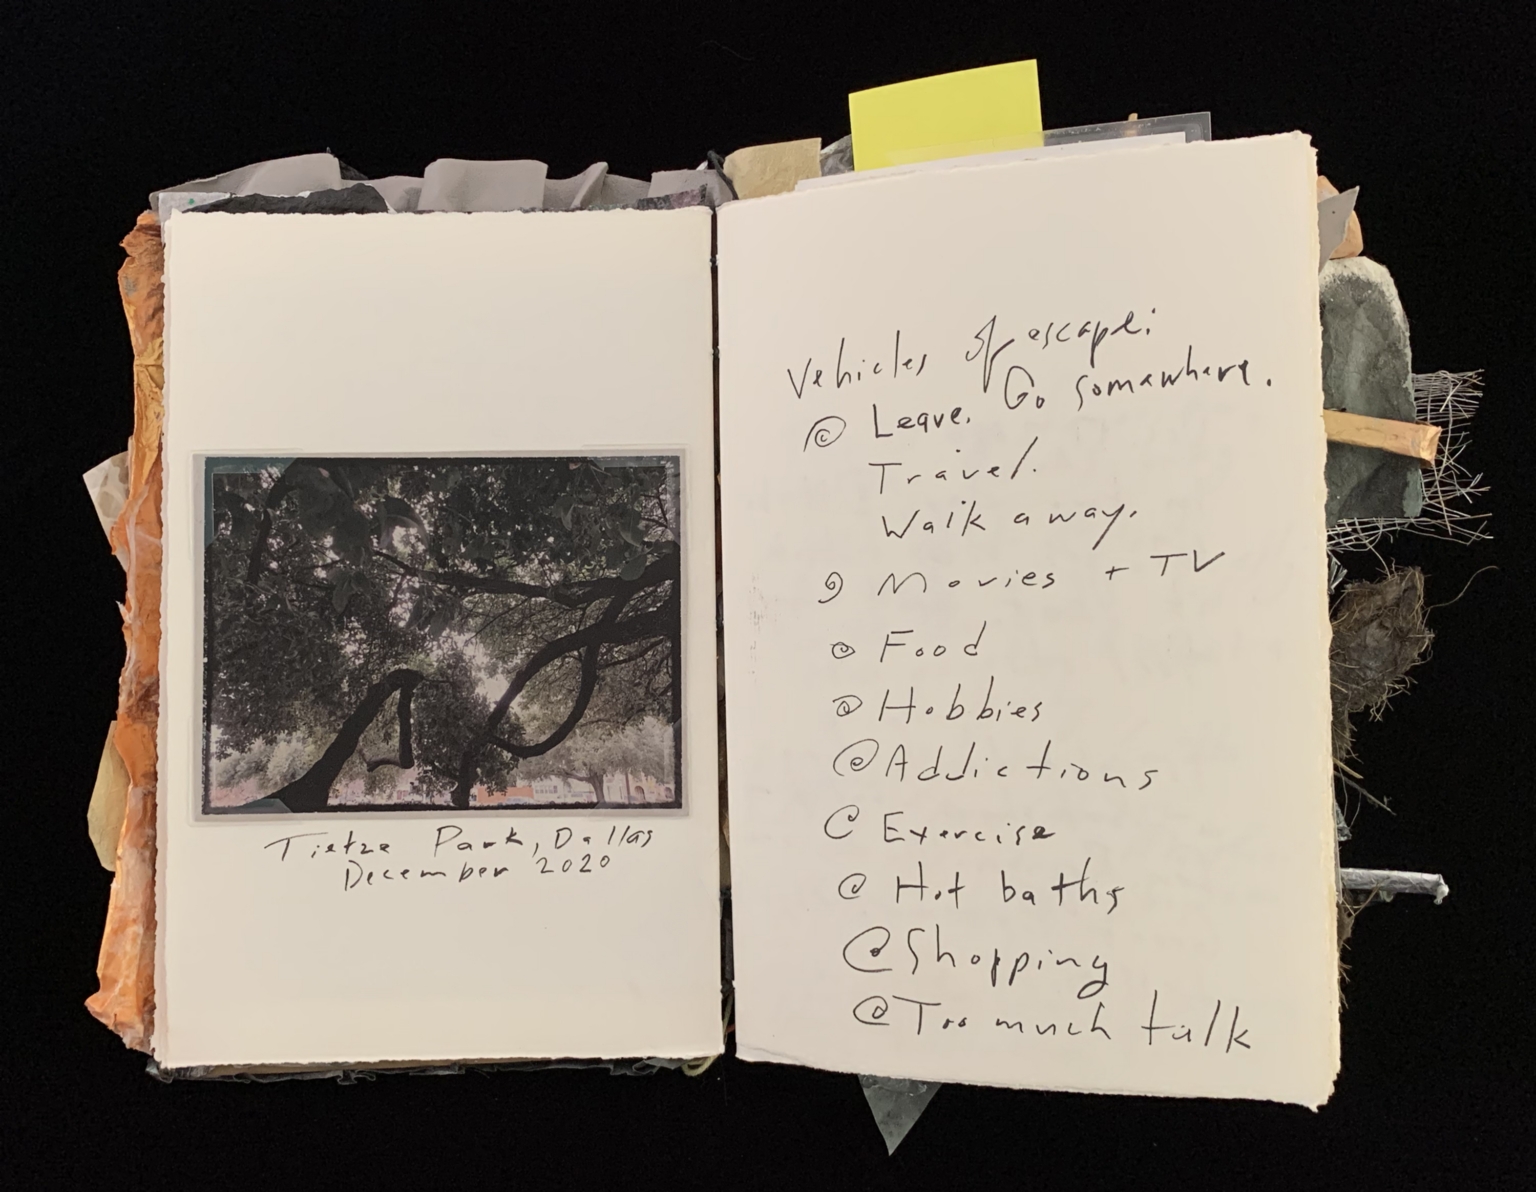 Tietze Park, Dallas
December 2020
Vehicles of escape:
Leave. Go somewhere.
Travel.
Walk away.
Movies + TV
Food
Hobbies
Addictions
Exercise
Hot baths
Shopping
Too much talk